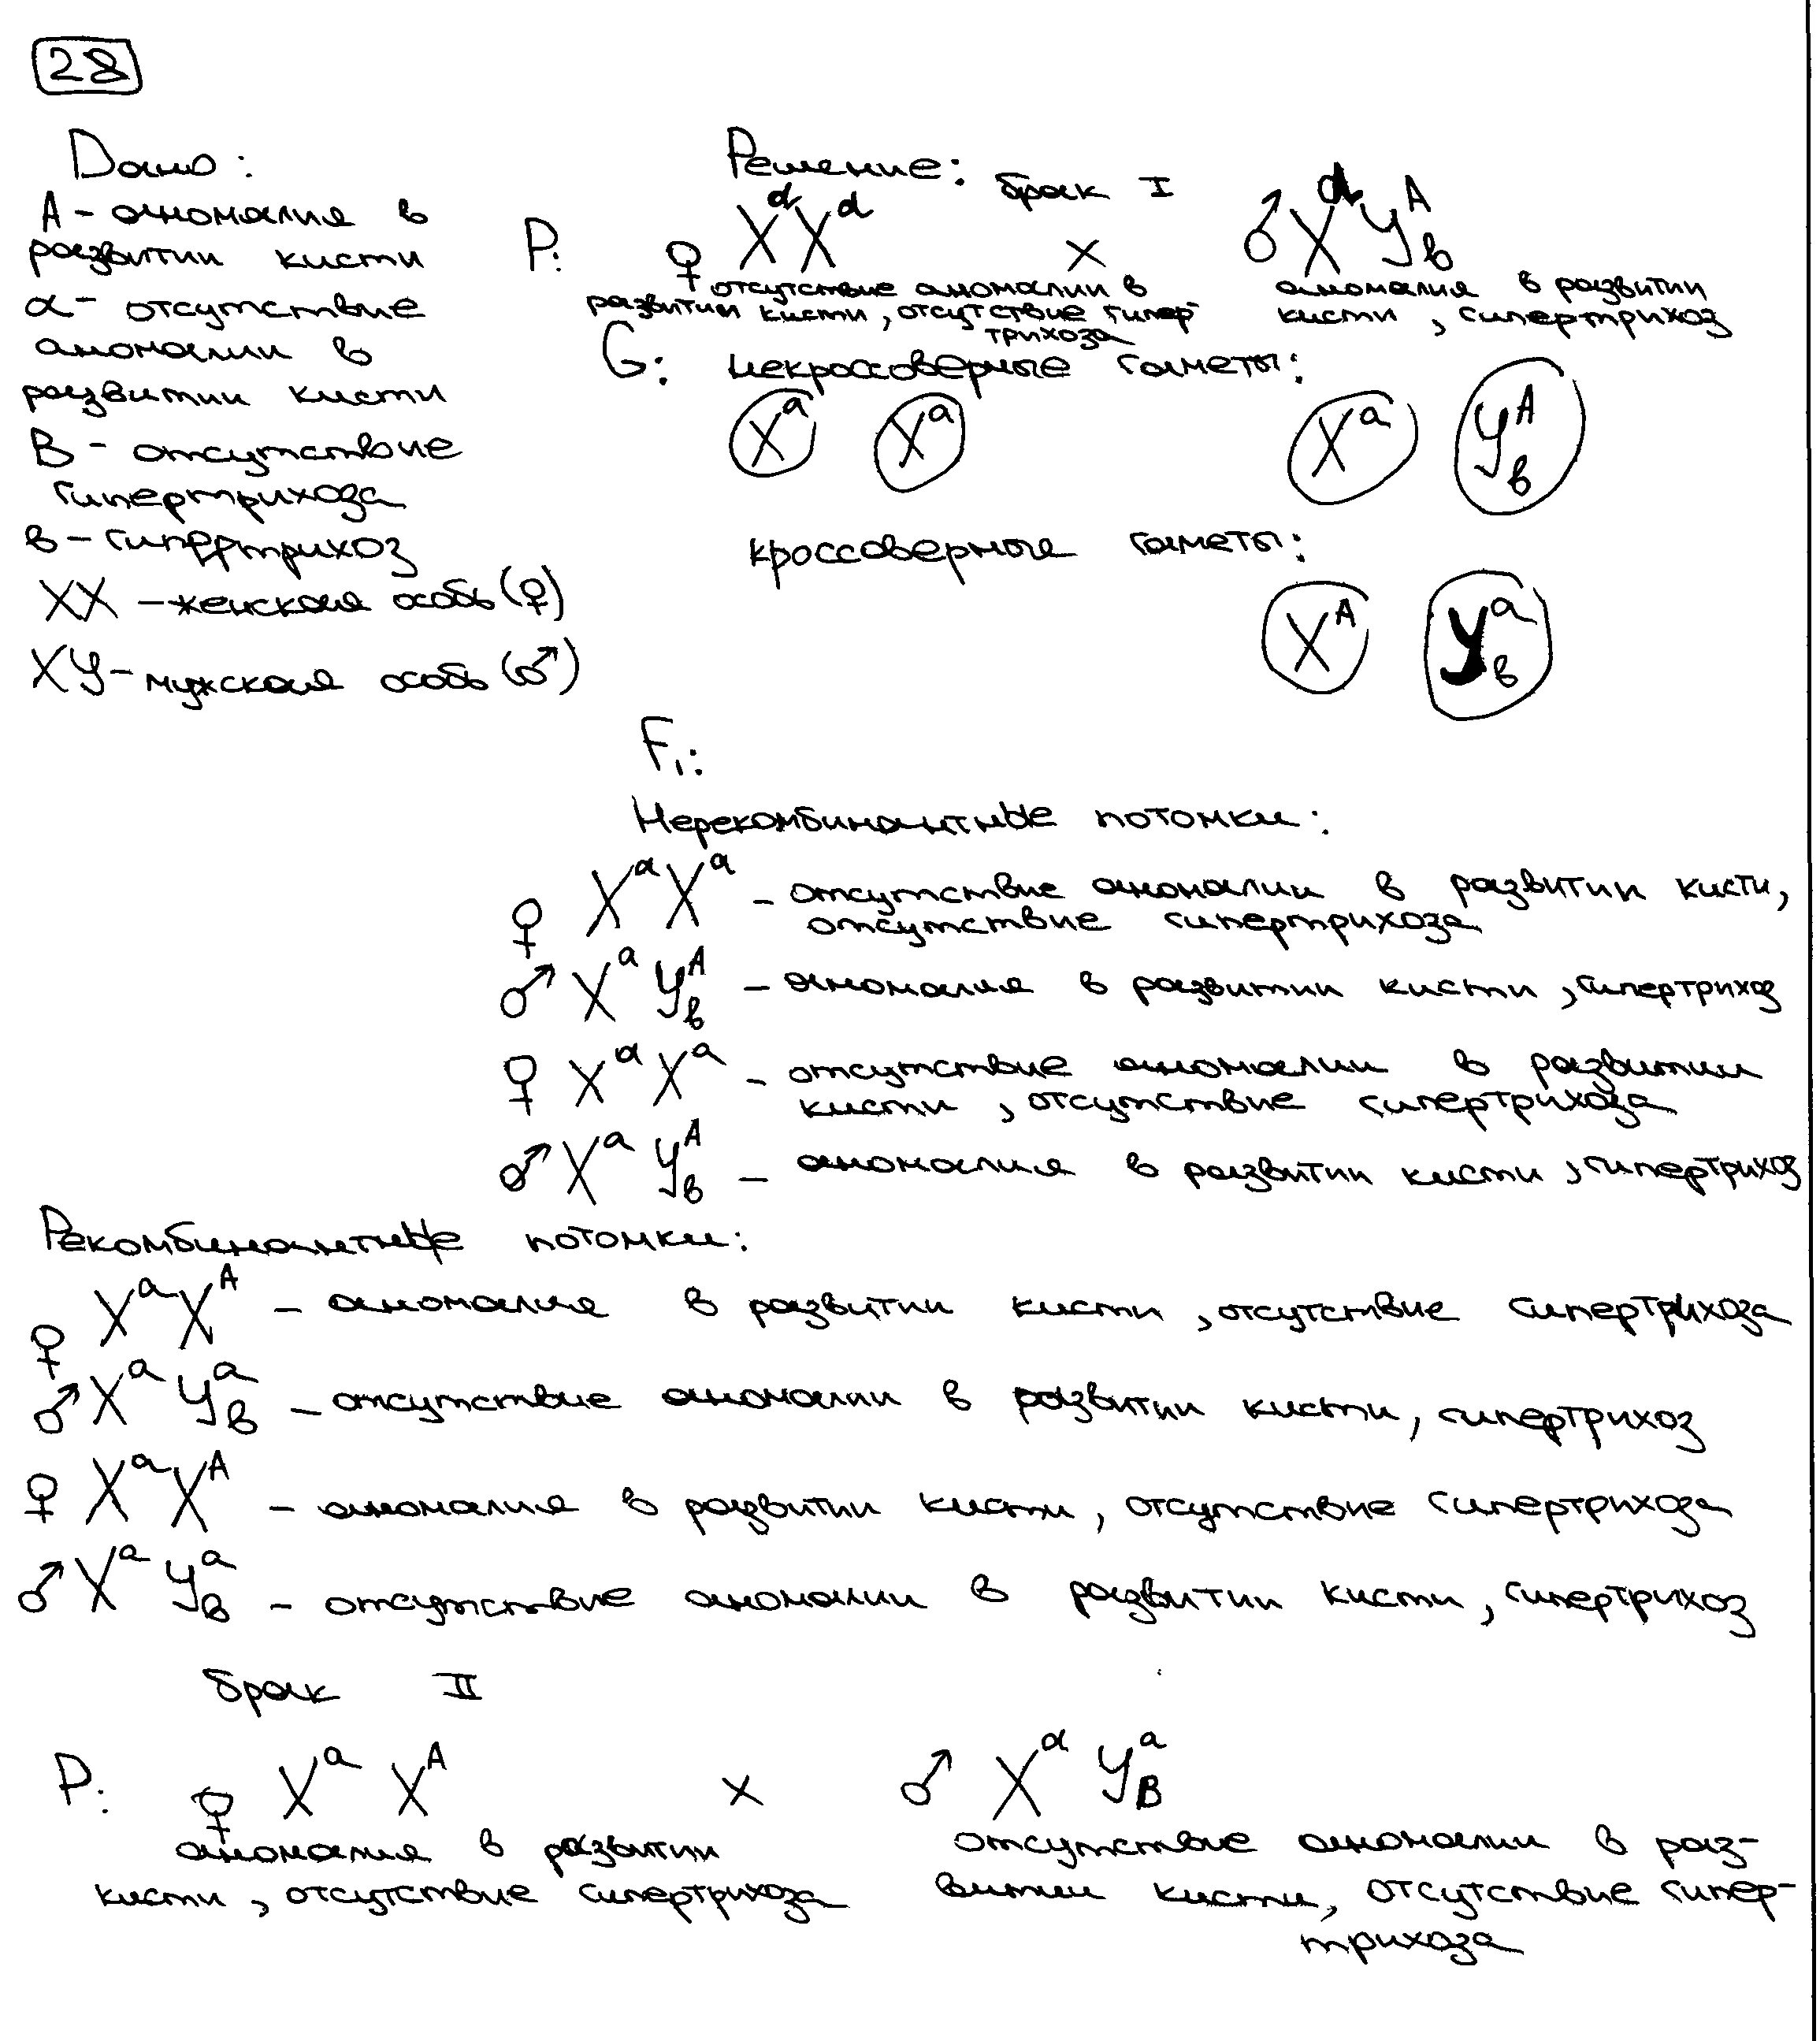 28
Дано:
А - аномалия в
развитии кисти
а - отсутствие
аномалии в
развитии кисти
В - отсутствие
гипертрихоза
в - гипертрихоз
XX - женская особь (♀)
XY - мужская особь (♂)
Решение: брак I
P: ♀ XᵃXᵃ × ♂ XᵃYᴬв
отсутствие аномалии в
развитии кисти, отсутствие гипер-
трихоза
аномалия в развитии
кисти, гипертрихоз
G: некроссоверные гаметы:
Xᵃ Xᵃ Xᵃ Yᴬв
кроссоверные гаметы:
Xᴬ Yᵃв
F₁:
Нерекомбинантные потомки:
♀ XᵃXᵃ - отсутствие аномалии в развитии кисти,
отсутствие гипертрихоза
♂ XᵃYᴬв - аномалия в развитии кисти, гипертрихоз
♀ XᵃXᵃ - отсутствие аномалии в развитии
кисти, отсутствие гипертрихоза
♂ XᵃYᴬв - аномалия в развитии кисти, гипертрихоз
Рекомбинантные потомки:
♀ XᵃXᴬ - аномалия в развитии кисти, отсутствие гипертрихоза
♂ XᵃYᵃв - отсутствие аномалии в развитии кисти, гипертрихоз
♀ XᵃXᴬ - аномалия в развитии кисти, отсутствие гипертрихоза
♂ XᵃYᵃв - отсутствие аномалии в развитии кисти, гипертрихоз
брак II
P: ♀ XᵃXᴬ × ♂ XᵃYᵃВ
аномалия в развитии
кисти, отсутствие гипертрихоза
отсутствие аномалии в раз-
витии кисти, отсутствие гипер-
трихоза